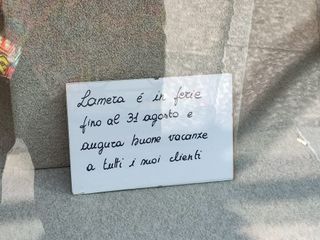 Lamera é in ferie
fino al 31 agosto e
augura buone vacanze
a tutti i suoi clienti